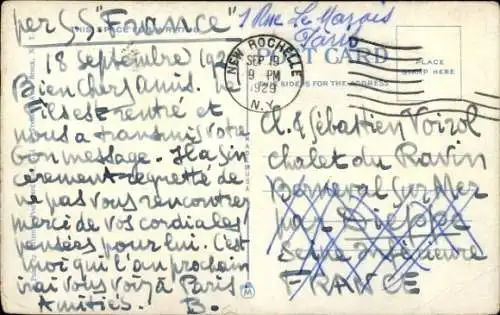 per S.S "France"
1 Rue Le Marois
Paris
THIS SPACE FOR WRITING
POST CARD
THIS SIDE IS FOR THE ADDRESS
PLACE
STAMP HERE
NEW ROCHELLE
SEP 19
9 PM
1929
N.Y.
18 Septembre 192
Bien chers Amis.
ils est rentré et
nous a transmis votre
bon message. Il a sin
cèrement regretté de
ne pas vous rencontrer,
merci de vos cordiales
pensées pour lui. C'est
moi qui l'an prochain
irai vous voir à Paris
Amitiés. B.
Cl. & Sébastien Voirol
Chalet du Ravin
Berneval sur Mer
par Dieppe
Seine Inférieure
FRANCE
M